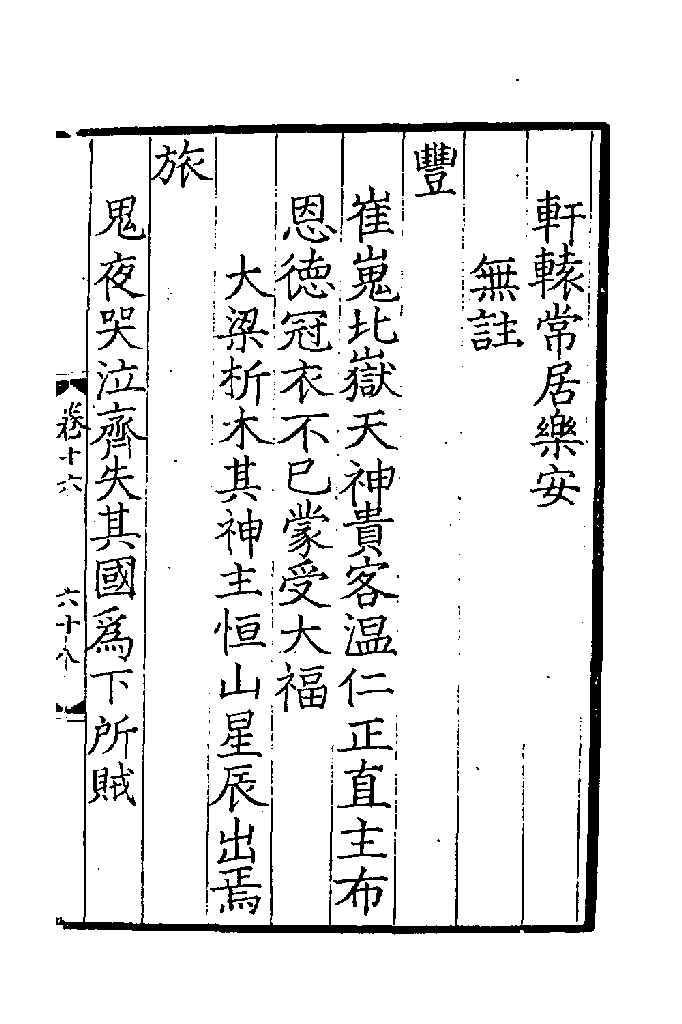 軒轅常居樂安
無註
豐
崔嵬北嶽天神貴客温仁正直主布
恩德冠衣不已蒙受大福
大梁析木其神主恒山星辰出焉
旅
鬼夜哭泣齊失其國爲下所賊
卷十六
六十八